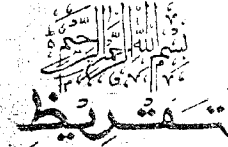 بسم الله الرحمن الرحيم
تقريظ